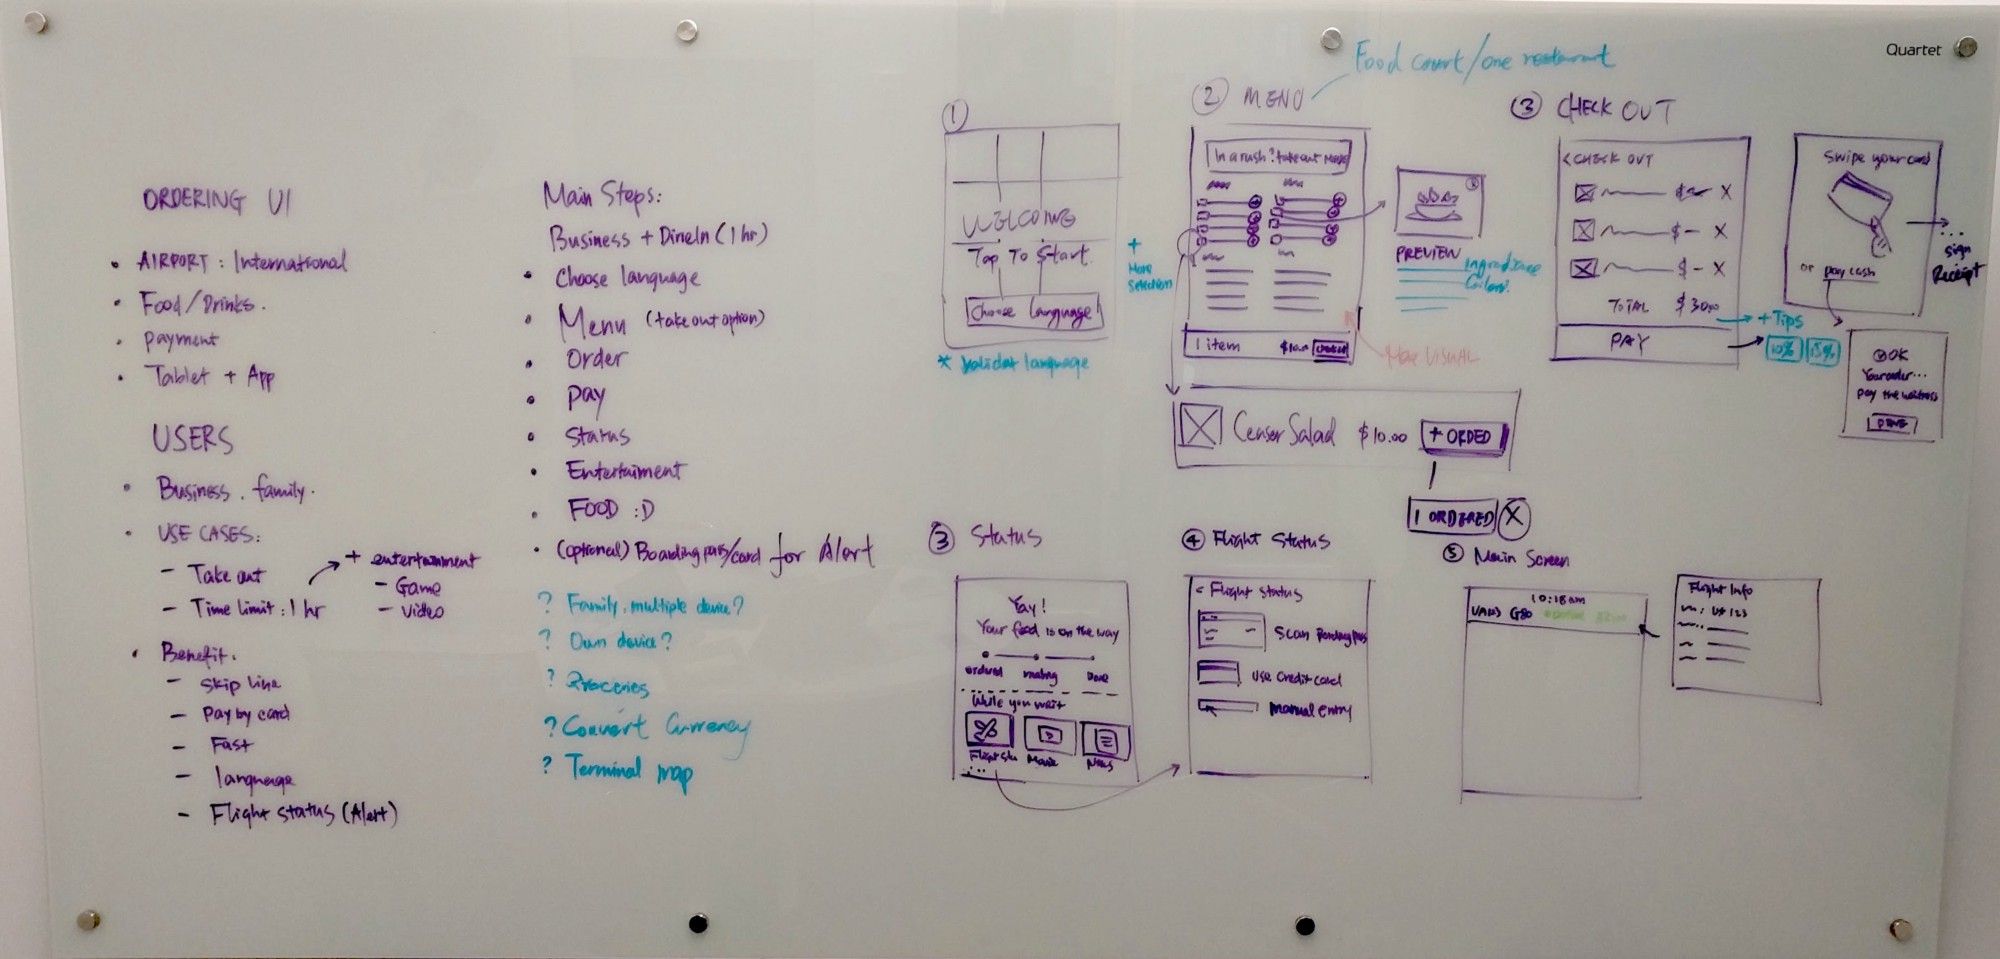 Quartet
ORDERING UI
• AIRPORT : International
• Food/Drinks.
• Payment
• Tablet + App
USERS
• Business . family.
• USE CASES:
- Take out
- Time limit : 1 hr
+ entertainment
- Game
- Video
• Benefit.
- Skip line
- Pay by card
- Fast
- language
- Flight status (Alert)
Main Steps:
Business + DineIn (1 hr)
• Choose language
• Menu (take out option)
• Order
• Pay
• Status
• Entertaiment
• FOOD :D
• (optional) Boarding pass/card for Alert
? Family, multiple device?
? Own device?
? Groceries
? Convert Currency
? Terminal map
①
WELCOME
Tap To Start
Choose language!
* Validat language
+
More
Selection
② MENU
Food court/one restaurant
In a rush? take out
1 item $10.
More VISUAL
PREVIEW
Ceaser Salad $10.00 + ORDED
1 ORDERED X
③ CHECK OUT
< CHECK OUT
$ X
$ - X
$ - X
TOTAL $30.00
PAY
+ Tips
10% 15%
Swipe your card
or pay cash
...
Sign
Receipt
OK
Your order...
Pay the waitress
DONE
③ Status
Yay!
Your food is on the way
ordered making Done
While you wait
Flight Sta Movie News
...
④ Flight Status
< Flight status
Scan Boarding pass
Use Credit card
Manual entry
⑤ Main Screen
10:18am
G80
Flight Info